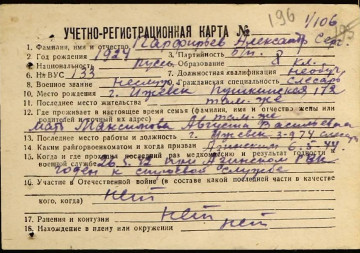 196 1/106
УЧЕТНО-РЕГИСТРАЦИОННАЯ КАРТА №
1. Фамилия, имя и отчество Парфирьев Александр Серг.
2. Год рождения 1924 3. Партийность б/п.
4. Национальность Русск 5. Образование 8 кл.
6. № ВУС 133 7. Должностная квалификация необуч
8. Военное звание 9. Гражданская специальность Слесарь
10. Место рождения г. Ижевск Пушкинская 173
11. Последнее место жительства там-же
12. Где проживает в настоящее время семья (фамилия, имя и отчество жены или
родителей и точный их адрес) там же
Мать Максимова Васильевна
13. Последнее место работы и должность г. Ижевск 3-д 74
14. Каким райгорвоенкоматом и когда призван Азинским 6.5.44.
15. Когда и где проходил последний раз медкомиссию и результат годности к
военной службе Азинском РВК
годен к строевой службе
16. Участие в Отечественной войне (в составе какой последней части в качестве
кого, когда) нет
17. Ранения и контузии нет
18. Нахождение в плену или окружении нет